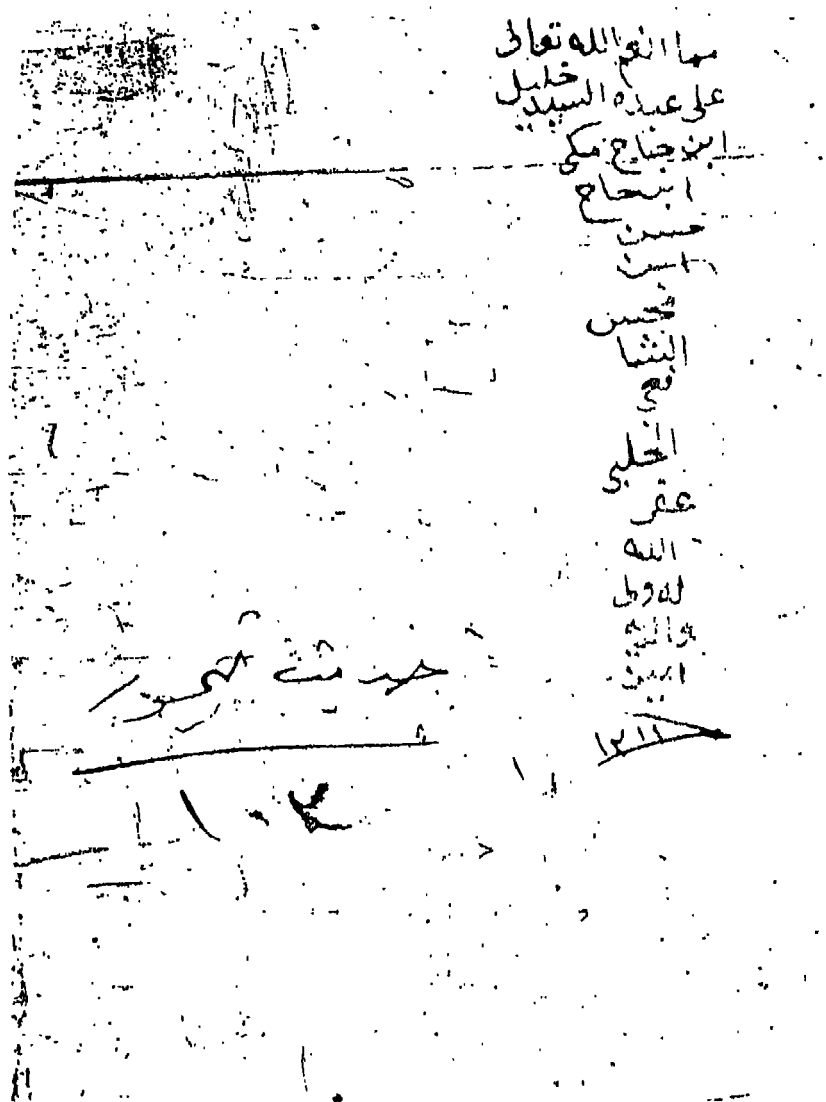 مما انعم الله تعالى
على عبده السيد خليل
ابن حاج مكي
ابن حاج
حسين
ابن
محسن
الشا
فعي
الحلبي
غفر
الله
له ول
والديه
امين
١٢١١
حديث تيمور
١٠٣